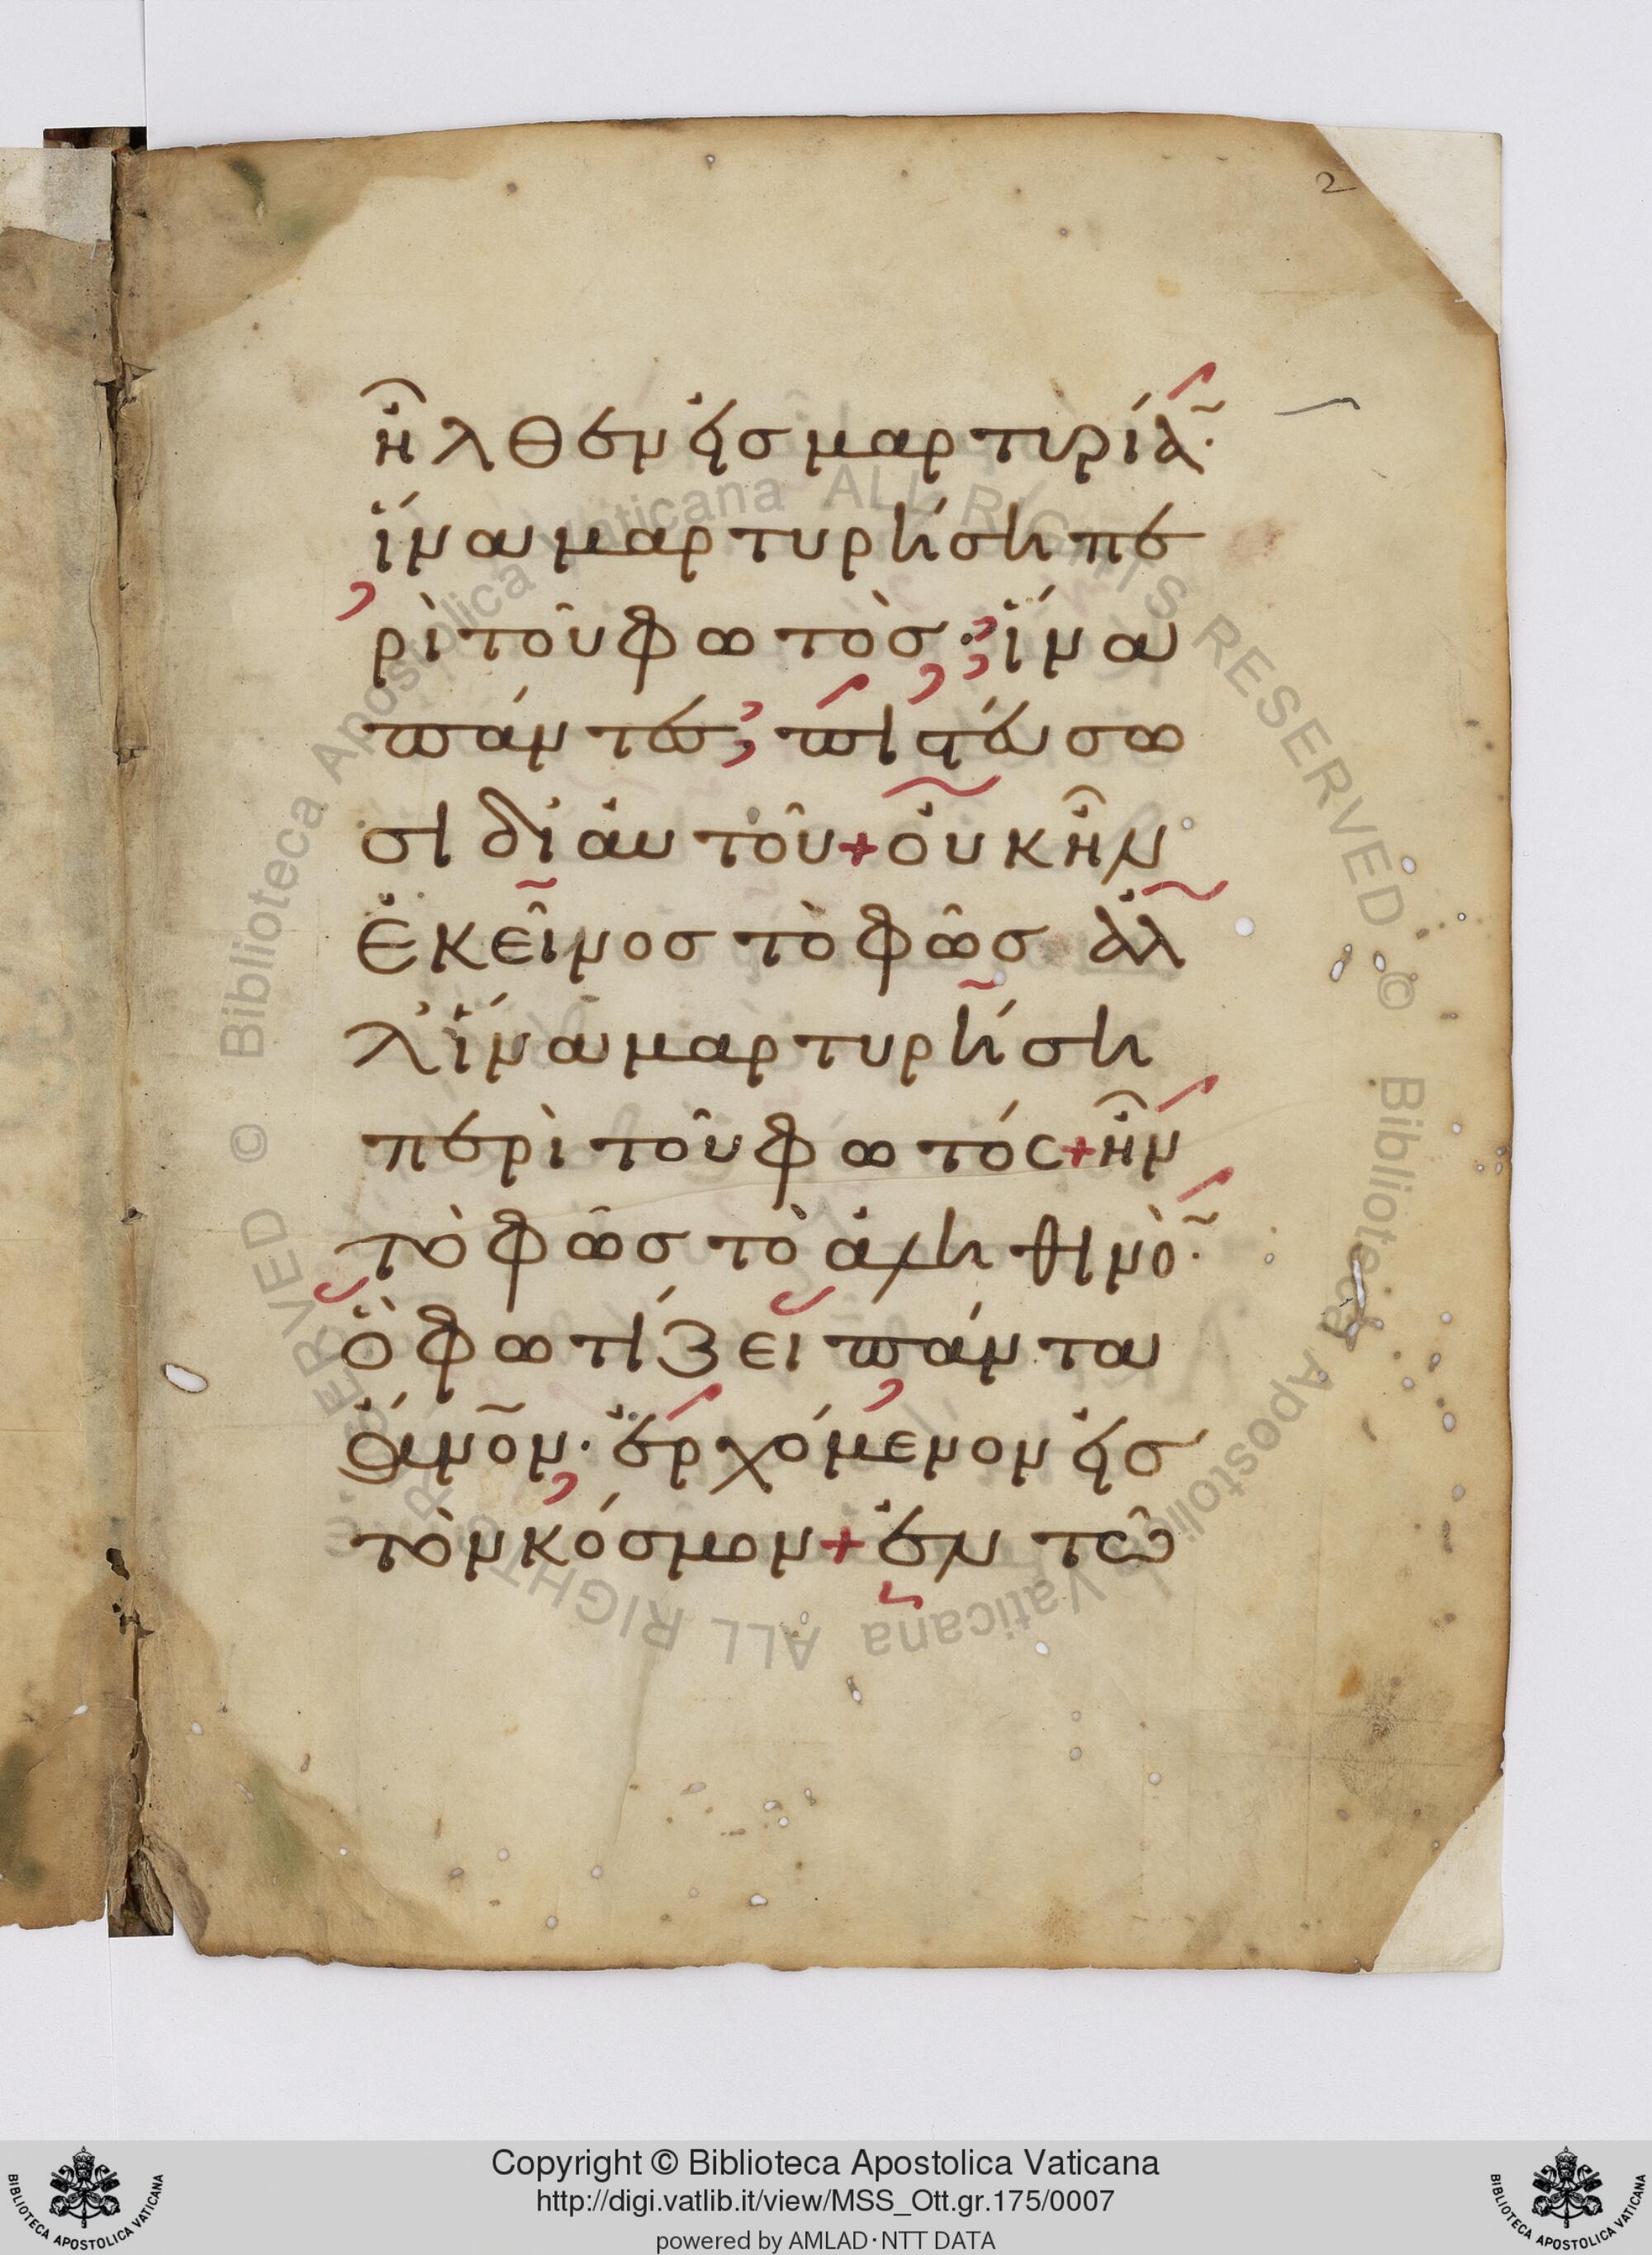 2
ἦλθεν εἰς μαρτυρία̃·
ἵνα μαρτυρήσῃ πε
ρὶ τοῦ φωτὸς· ἵνα
πάντες πιστεύσω
σι δι' αὐτοῦ + οὐκ ἦν
ἐκεῖνος τὸ φῶς ἀλ
λ' ἵνα μαρτυρήσῃ
περὶ τοῦ φωτός + ἦν
τὸ φῶς τὸ ἀληθινὸ̃·
ὃ φωτίζει πάντα
ἄ̅ν̅ο̅ν̅· ἐρχόμενον εἰς
τὸν κόσμον + ἐν τῶ
© Biblioteca Apostolica Vaticana ALL RIGHTS RESERVED © Biblioteca Apostolica Vaticana ALL RIGHTS RESERVED
Copyright © Biblioteca Apostolica Vaticana
http://digi.vatlib.it/view/MSS_Ott.gr.175/0007
powered by AMLAD·NTT DATA
BIBLIOTECA APOSTOLICA VATICANA
BIBLIOTECA APOSTOLICA VATICANA